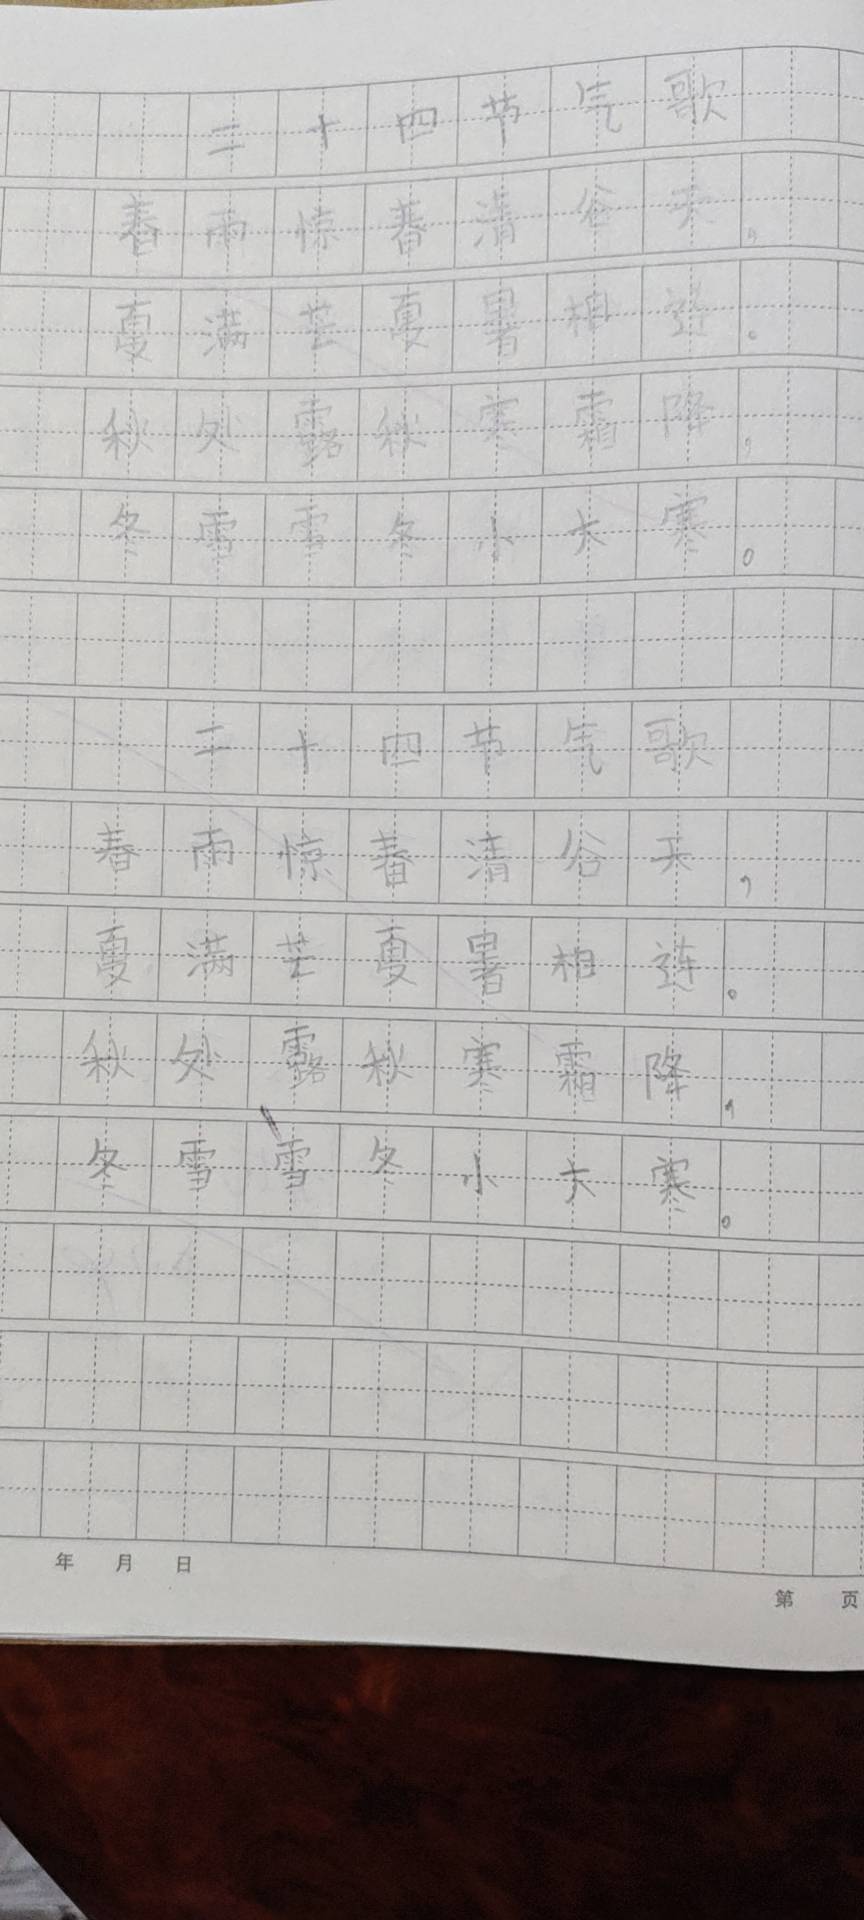 二十四节气歌
春雨惊春清谷天，
夏满芒夏暑相连。
秋处露秋寒霜降，
冬雪雪冬小大寒。
二十四节气歌
春雨惊春清谷天，
夏满芒夏暑相连。
秋处露秋寒霜降，
冬雪雪冬小大寒。
年 月 日
第 页